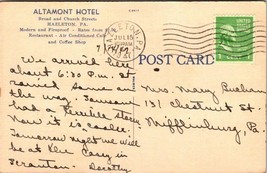 ALTAMONT HOTEL
Broad and Church Streets
HAZLETON, PA.
Modern and Fireproof - Rates from
Restaurant - Air Conditioned
and Coffee Shop
HAZLETON, PA.
JUL 15
POST CARD
We arrived here
about 6:30 P.M. It
rained some on
the way. Tamaqua
had a terrible storm
Now it is cooler.
Tomorrow night we will
be at the Casey in
Scranton. Dorothy
Mrs. Mary
131 Chestnut St.
Mifflinburg,
Pa.